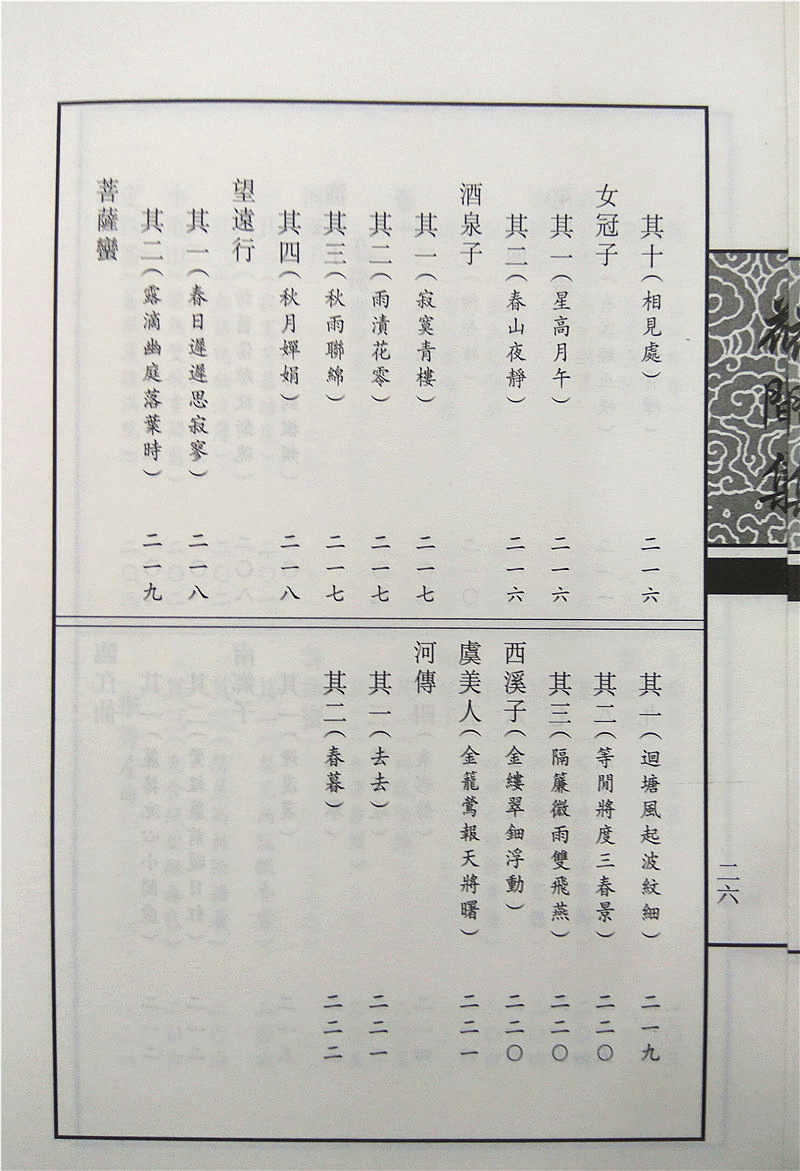 花間集
二六
其十（相見處） 二一六
女冠子
其一（星高月午） 二一六
其二（春山夜靜） 二一六
酒泉子
其一（寂寞青樓） 二一七
其二（雨漬花零） 二一七
其三（秋雨聯綿） 二一七
其四（秋月嬋娟） 二一八
望遠行
其一（春日遲遲思寂寥） 二一八
其二（露滴幽庭落葉時） 二一九
菩薩蠻
其一（迴塘風起波紋細） 二一九
其二（等閒將度三春景） 二二〇
其三（隔簾微雨雙飛燕） 二二〇
西溪子（金縷翠鈿浮動） 二二〇
虞美人（金籠鶯報天將曙） 二二一
河傳
其一（去去） 二二一
其二（春暮） 二二二